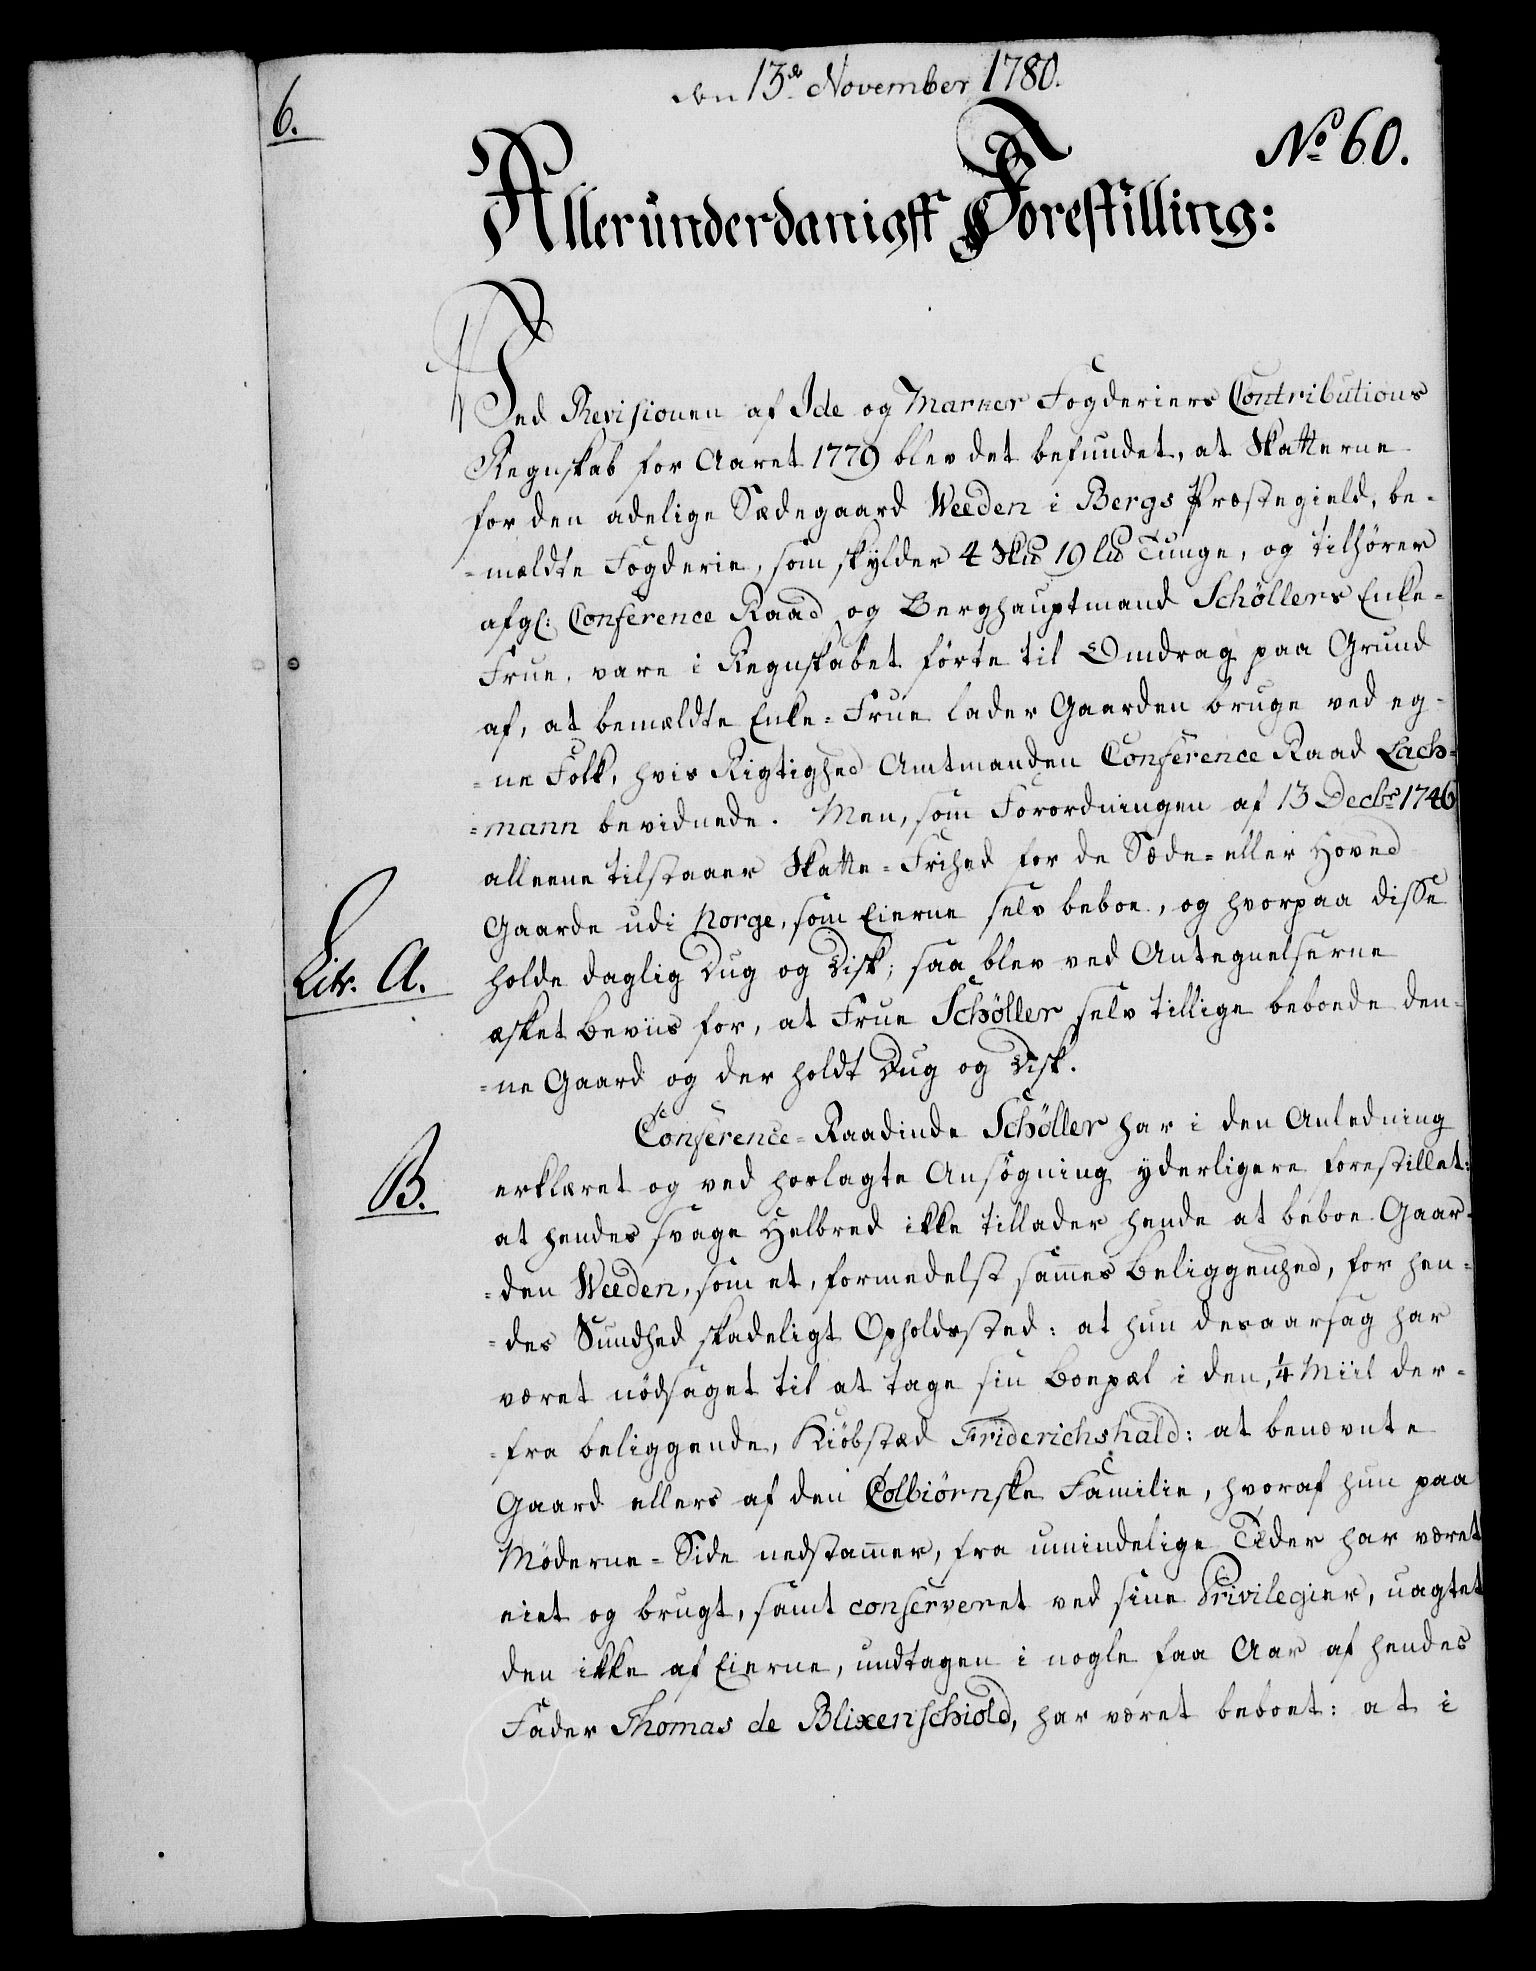 6.
den 13de November 1780.
No 60.
Allerunderdanigst Forestilling:
Ved Revisionen af Ide og Marker Fogderiers Contributions
Regnskab for Aaret 1779 blev det befundet, at Skatterne
for den adelige Sædegaard Weeden i Bergs Præstegield, be-
=meldte Fogderie, som skylder 4 Sk℔ 19 l℔ Tunge, og tilhører
afgl: Conference Raad og Berghauptmand Schöllers Enke-
Frue, vare i Regnskabet førte til Omdrag paa Grund
af, at bemældte Enke-Frue lader Gaarden bruge ved eg-
=ne Folk, hvis Rigtighed Amtmanden Conference Raad Lach=
=mann bevidnede. Men, som Forordningen af 13 Decbr 1746
alleene tilstaaer Skatte-Frihed for de Sæde-eller Hoved
Gaarde udi Norge, som Eierne selv beboe, og hvorpaa disse
Litr. A.
holde daglig Dug og Disk; saa blev ved Antegnelserne
æsket Beviis for, at Frue Schöller selv tillige beboede den-
=ne Gaard og der holdt Dug og Disk.
Conference-Raadinde Schöller har i den Anledning
B.
erklæret og ved hoslagte Ansögning yderligere forestillet:
at hendes svage Helbred ikke tillader hende at beboe Gaar-
=den Weeden, som et, formedelst sammes Beliggenhed, for hen-
=des Sundhed skadeligt Opholdssted: at hun desaarsag har
været nödsaget til at tage sin Boepæl i den, 1/4 Miil der-
=fra beliggende, Kiöbstæd Friderichshald: at benævnte
Gaard ellers af den Colbiörnske Familie, hvoraf hun paa
Möderne-Side nedstammer, fra umindelige Tider har været
eiet og brugt, samt conserveret ved sine Privilegier, uagtet
den ikke af Eierne, undtagen i nogle faa Aar af hendes
Fader Thomas de Blixenschiold, har været beboet: at i